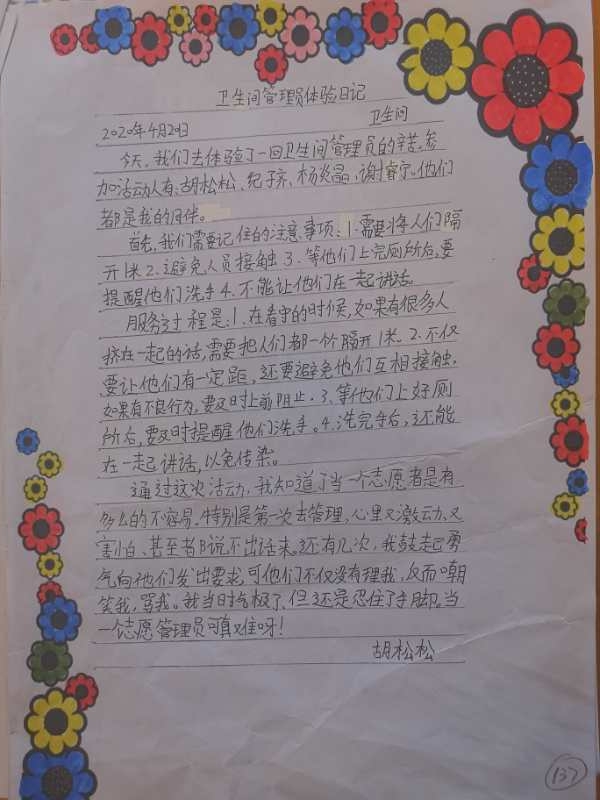 卫生间管理员体验日记
2020年4月20日 卫生间
今天,我们去体验了一回卫生间管理员的辛苦。参
加活动人有:胡松松、纪子齐、杨炎晶、谢睿宁。他们
都是我的同伴。
首先,我们需要记住的注意事项:1.需要将人们隔
开1米2.避免人员接触3.等他们上完厕所后,要
提醒他们洗手4.不能让他们在一起讲话。
服务过程是:1.在看守的时候,如果有很多人
挤在一起的话,需要把人们都一个个隔开1米。2.不仅
要让他们有一定距,还要避免他们互相接触,
如果有不良行为,要及时上前阻止。3.等他们上好厕
所后,要及时提醒他们洗手。4.洗完手后,还能
在一起讲话,以免传染。
通过这次活动,我知道了当一个志愿者是有
多么的不容易。特别是第一次去管理,心里又激动、又
害怕、甚至都说不出话来。还有几次,我鼓起勇
气向他们发出要求,可他们不仅没有理我,反而嘲
笑我,骂我。我当时气极了,但还是忍住了手脚。当
一个志愿管理员可真难呀!
胡松松
137